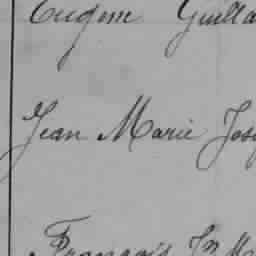 Eugène Guilla
Jean Marie Jos
François M